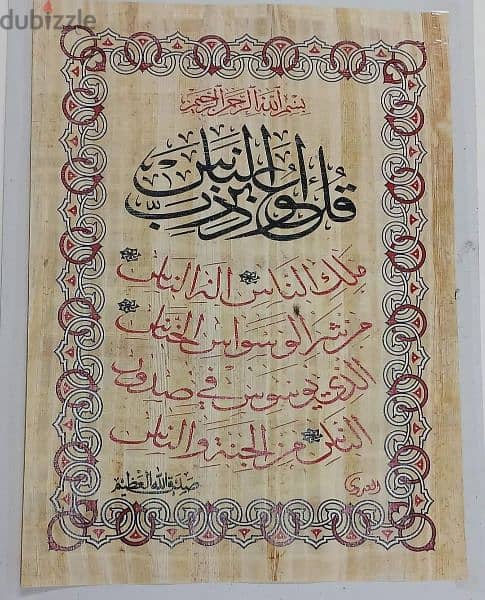 dubizzle
بسم الله الرحمن الرحيم
قل أعوذ برب الناس
ملك الناس اله الناس
من شر الوسواس الخناس
الذي يوسوس في صدور
الناس من الجنة والناس
صدق الله العظيم